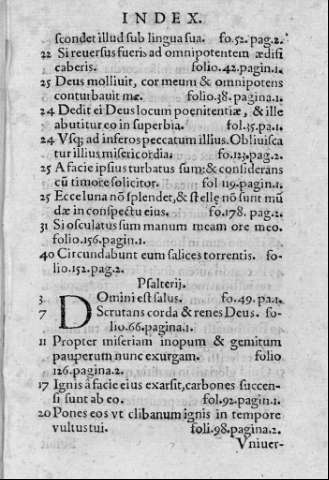 INDEX.
scondet illud sub lingua sua. fo.52.pag.2.
22 Si reuersus fueris ad omnipotentem ædifi
caberis. folio.42.pagin.1.
25 Deus molliuit, cor meum & omnipotens
conturbauit me. folio.38.pagina.1.
24 Dedit ei Deus locum poenitentiæ, & ille
abutitur eo in superbia. fol.35.pa.1.
24 Vsq; ad inferos peccatum illius. Obliuisca
tur illius misericordia. fo.123.pag.2.
25 A facie ipsius turbatus sum: & considerans
cũ timore solicitor. fol 119.pagin.1.
25 Ecce luna nõ splendet, & stellę nõ sunt mũ
dæ in conspectu eius. fo.178. pag.2.
31 Si osculatus sum manum meam ore meo.
folio.156.pagin.1.
40 Circundabunt eum salices torrentis. fo-
lio.152.pag.2.
Psalterij.
3. DOmini est salus. fo.49.pa.1.
7 Scrutans corda & renes Deus. fo-
lio.66.pagina.1.
11 Propter miseriam inopum & gemitum
pauperum nunc exurgam. folio
126.pagina.2.
17 Ignis á facie eius exarsit, carbones succen-
si sunt ab eo. fol.92.pagin.1.
20 Pones eos vt clibanum ignis in tempore
vultus tui. foli.98.pagina.2.
Vniuer-